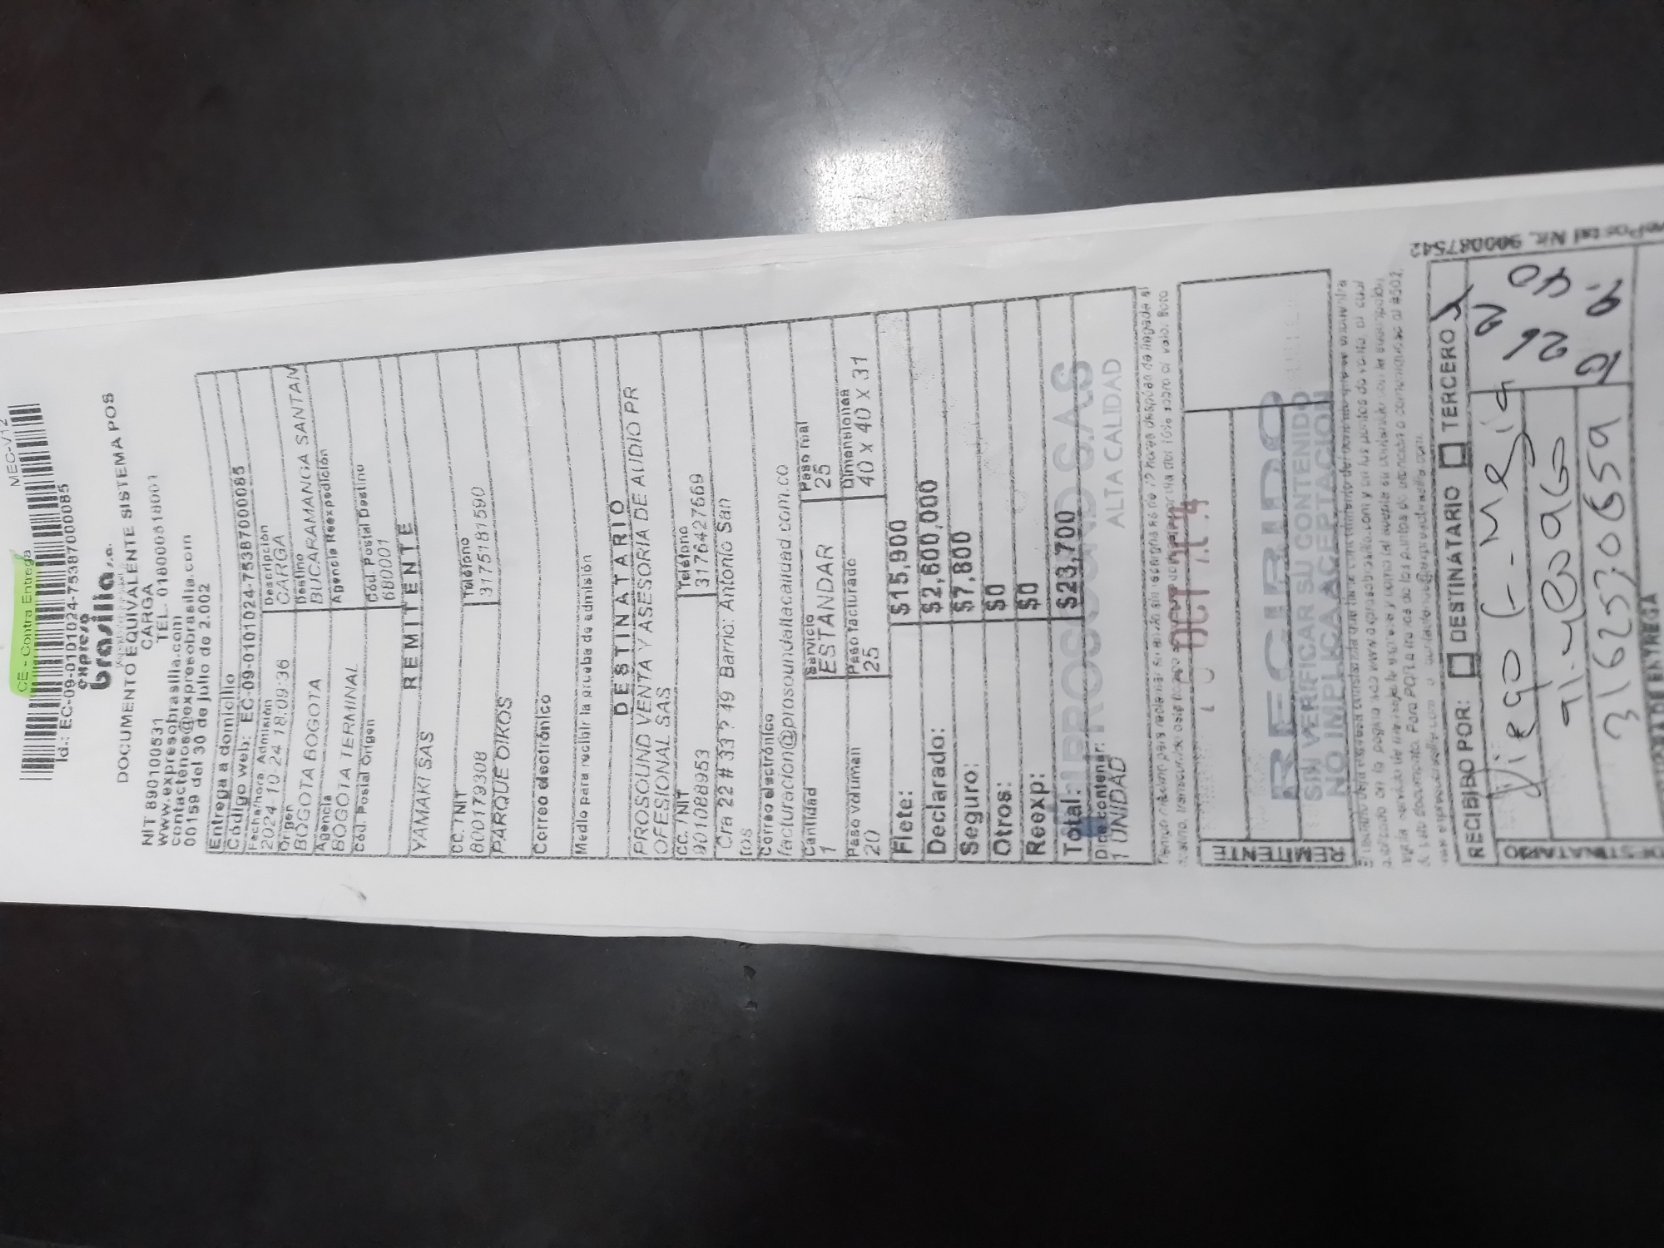 CE - Contra Entrega
MEC-V12
Id.: EC-09-0101024-75387000085
expreso
brasilia s.a.
DOCUMENTO EQUIVALENTE SISTEMA POS
CARGA
NIT 890100531
TEL. 018000518001
www.expresobrasilia.com
contactenos@expresobrasilia.com
00159 del 30 de julio de 2.002
Entrega a domicilio
Código web: EC-09-0101024-75387000085
Fecha/hora Admisión
2024-10-24 18:09:36
Descripción
CARGA
Origen
BOGOTA BOGOTA
Destino
BUCARAMANGA SANTAN
Agencia
BOGOTA TERMINAL
Agencia Reexpedición
Cód. Postal Origen
Cód. Postal Destino
680001
REMITENTE
YAMAKI SAS
CC./NIT
800179308
Teléfono
3175181590
PARQUE OIKOS
Correo electrónico
Medio para recibir la prueba de admisión
DESTINATARIO
PROSOUND VENTA Y ASESORIA DE AUDIO PR
OFESIONAL SAS
CC. /NIT
9010888953
Teléfono
3176427569
Cra 22 # 33 ? 49 Barrio: Antonio San
tos
Correo electrónico
facturacion@prosoundaltacalidad.com.co
Cantidad
1
Servicio
ESTANDAR
Peso real
25
Peso volumen
20
Peso facturado
25
Dimensiones
40 x 40 x 31
Flete: $15,900
Declarado: $2,600,000
Seguro: $7,800
Otros: $0
Reexp: $0
Total: $23,700
Dice contener:
1 UNIDAD
PROSOUND S.A.S
ALTA CALIDAD
RECIBIDO
SIN VERIFICAR SU CONTENIDO
NO IMPLICA ACEPTACION
REMITENTE
RECIBIDO POR: DESTINATARIO TERCERO
DESTINATARIO
Diego Mejia
3162570659
Nit. 900087542